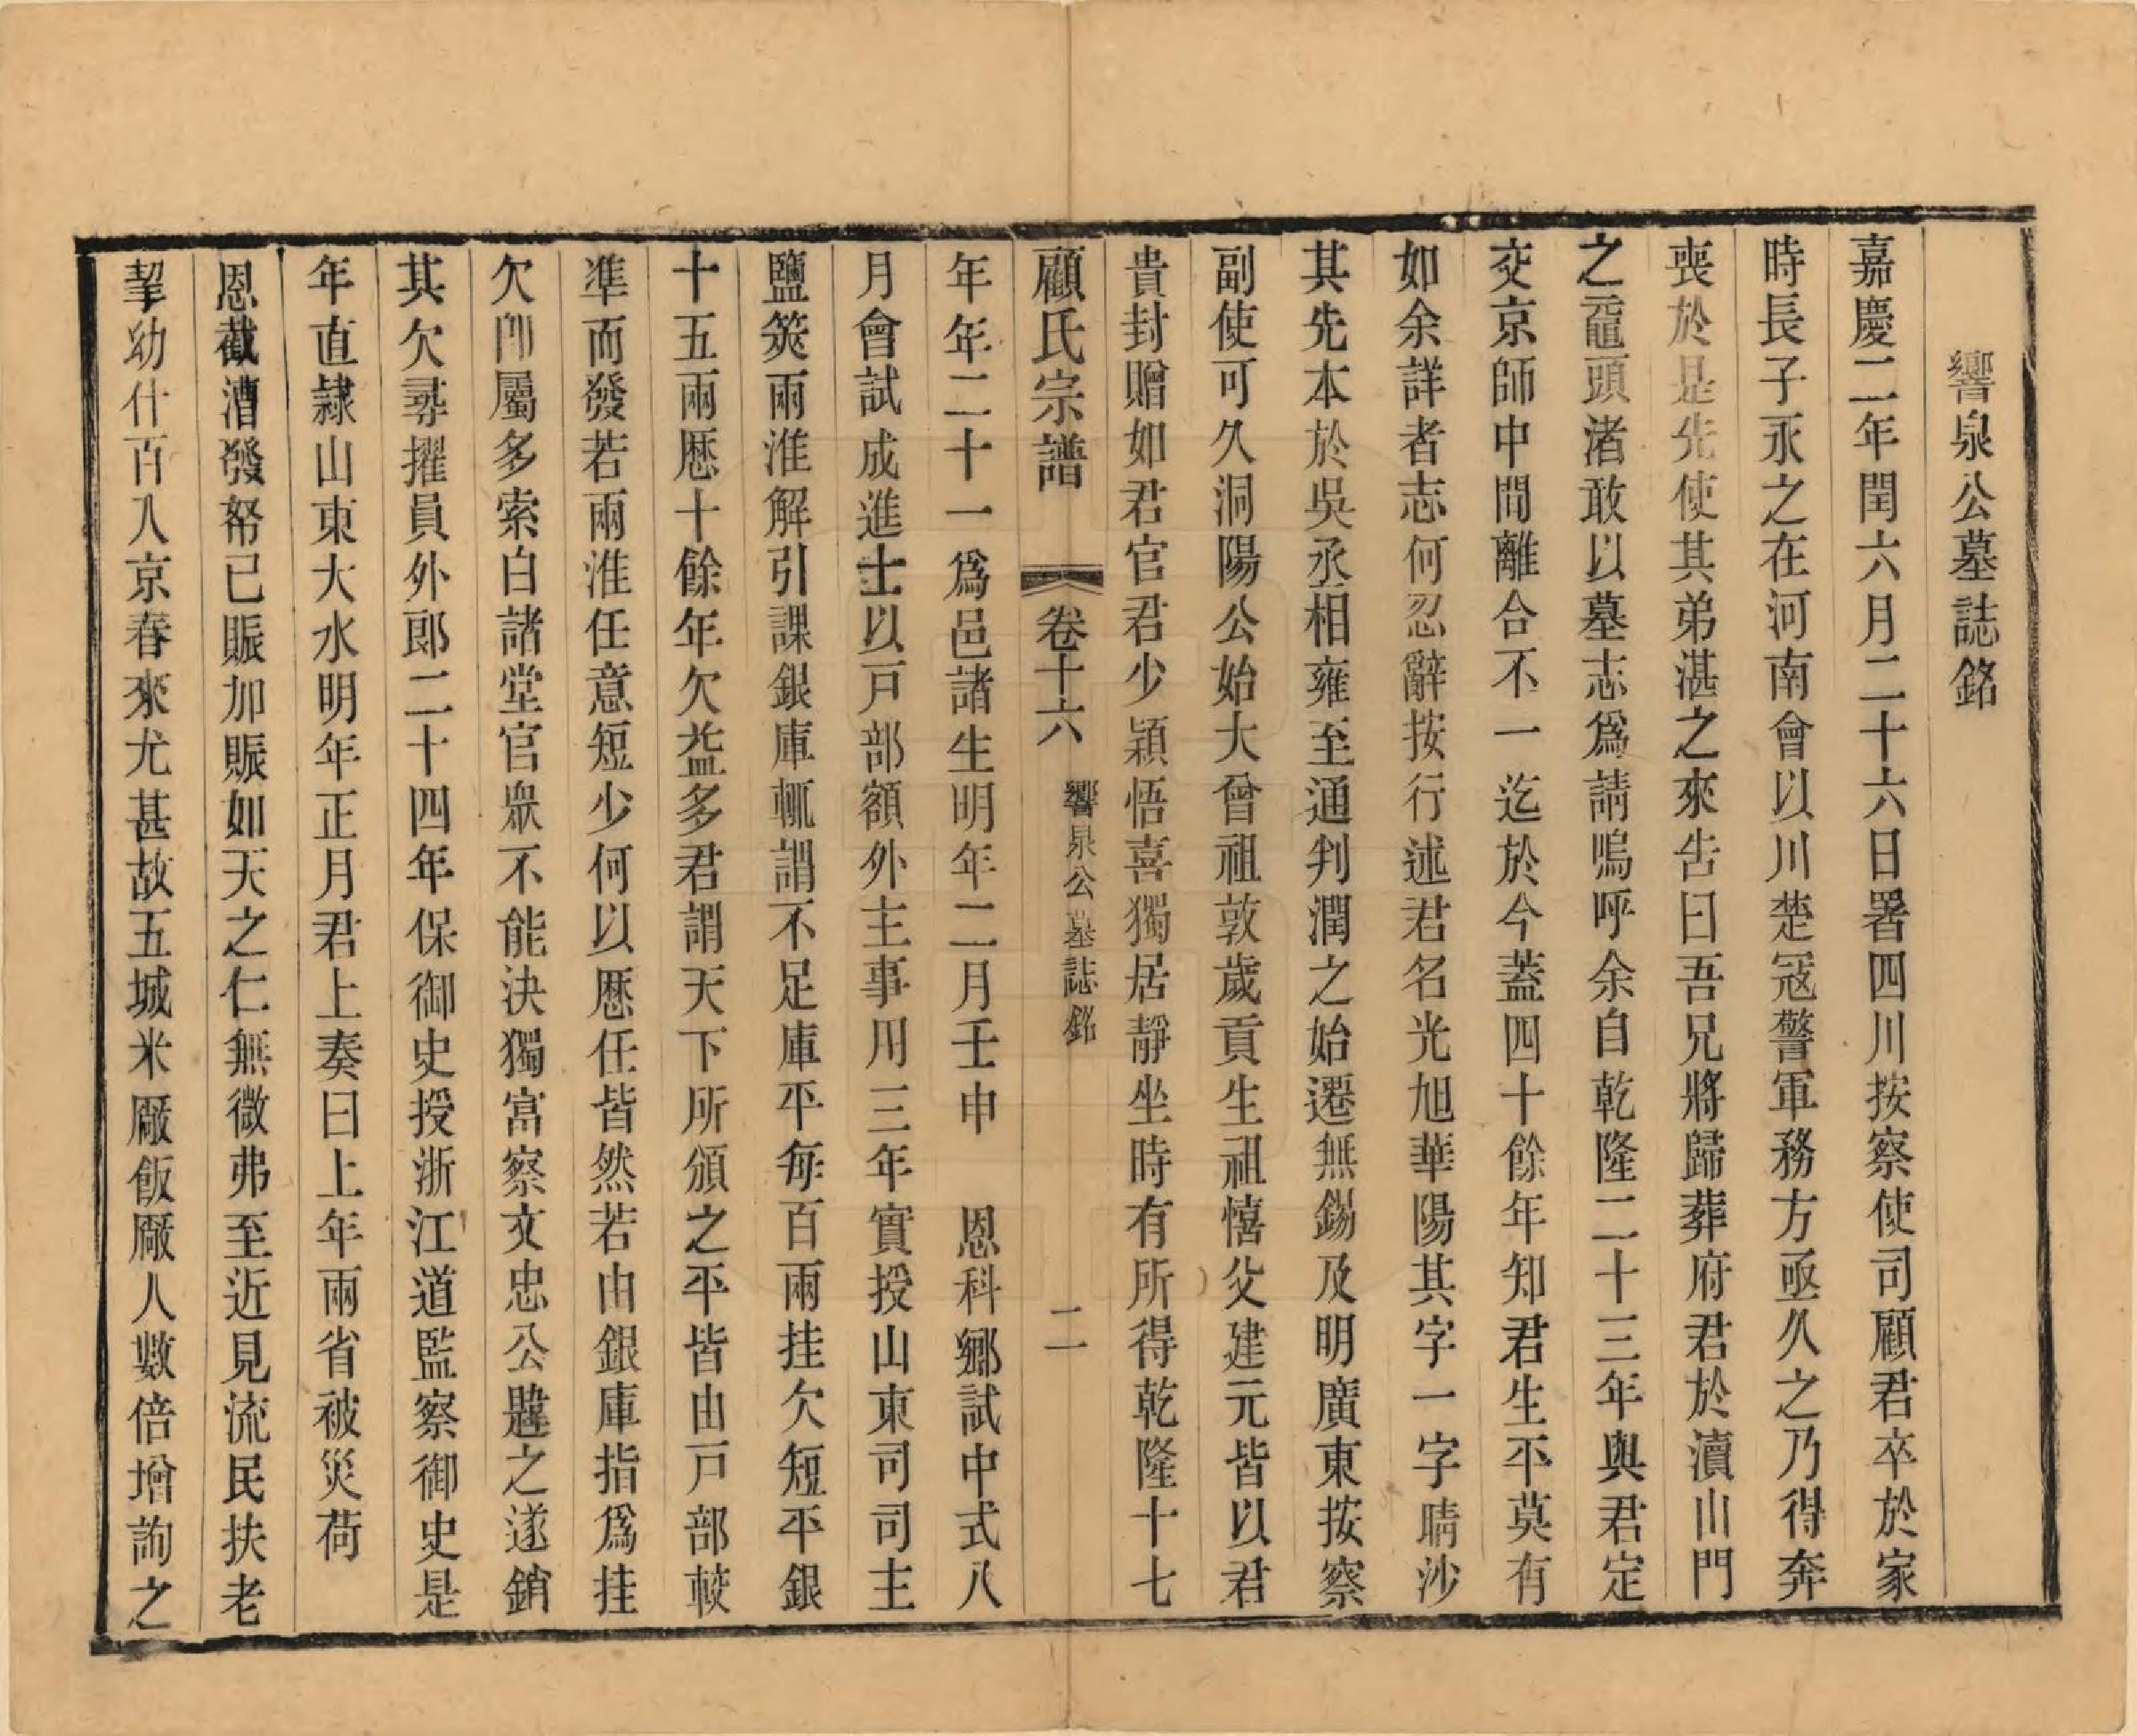 響泉公墓誌銘
嘉慶二年閏六月二十六日署四川按察使司顧君卒於家
時長子永之在河南會以川楚冦警軍務方亟久之乃得奔
喪於是先使其弟湛之來告曰吾兄將歸葬府君於瀆山門
之黿頭渚敢以墓志爲請嗚呼余自乾隆二十三年與君定
交京師中間離合不一迄於今蓋四十餘年知君生平莫有
如余詳者志何忍辭按行述君名光旭華陽其字一字晴沙
其先本於吳丞相雍至通判潤之始遷無錫及明廣東按察
副使可久洞陽公始大曾祖敦歲貢生祖憘父建元皆以君
貴封贈如君官君少穎悟喜獨居靜坐時有所得乾隆十七
顧氏宗譜 卷十六 響泉公墓誌銘 二
年年二十一爲邑諸生明年二月壬申 恩科鄉試中式八
月會試成進士以戸部額外主事用三年實授山東司司主
鹽筴兩淮解引課銀庫輒謂不足庫平每百兩挂欠短平銀
十五兩歷十餘年欠益多君謂天下所頒之平皆由戸部較
準而發若兩淮任意短少何以歷任皆然若由銀庫指爲挂
欠卽屬多索白諸堂官眾不能決獨富察文忠公韙之遂銷
其欠尋擢員外郎二十四年保御史授浙江道監察御史是
年直隸山東大水明年正月君上奏曰上年兩省被災荷
恩截漕發帑已賑加賑如天之仁無微弗至近見流民扶老
挈幼什百入京春來尤甚故五城米廠飯廠人數倍增詢之